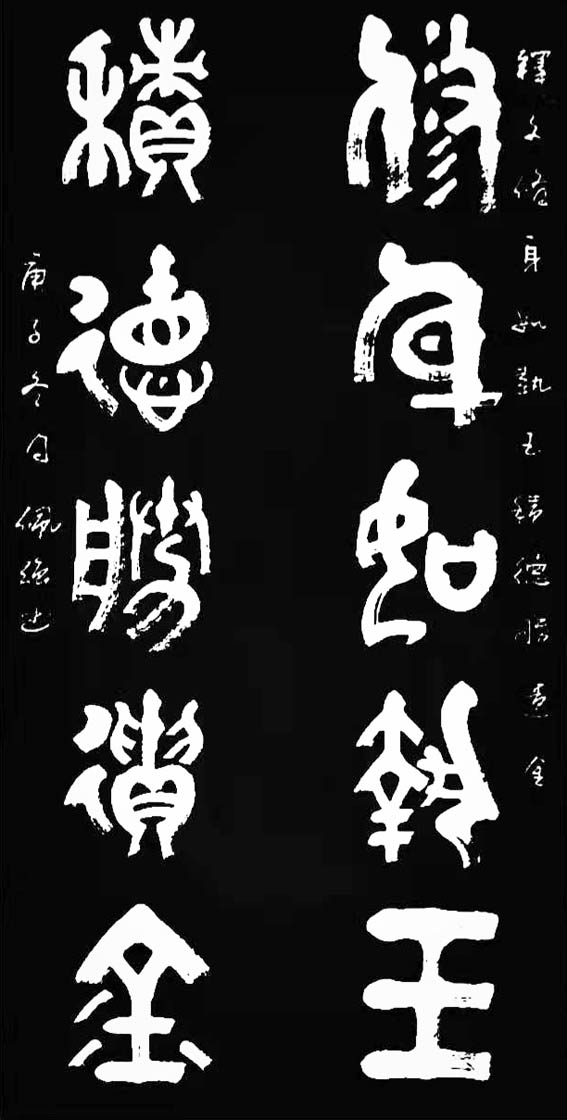 釋文修身如執玉積德勝遺金
修身如執玉
積德勝遺金
庚子冬月佩